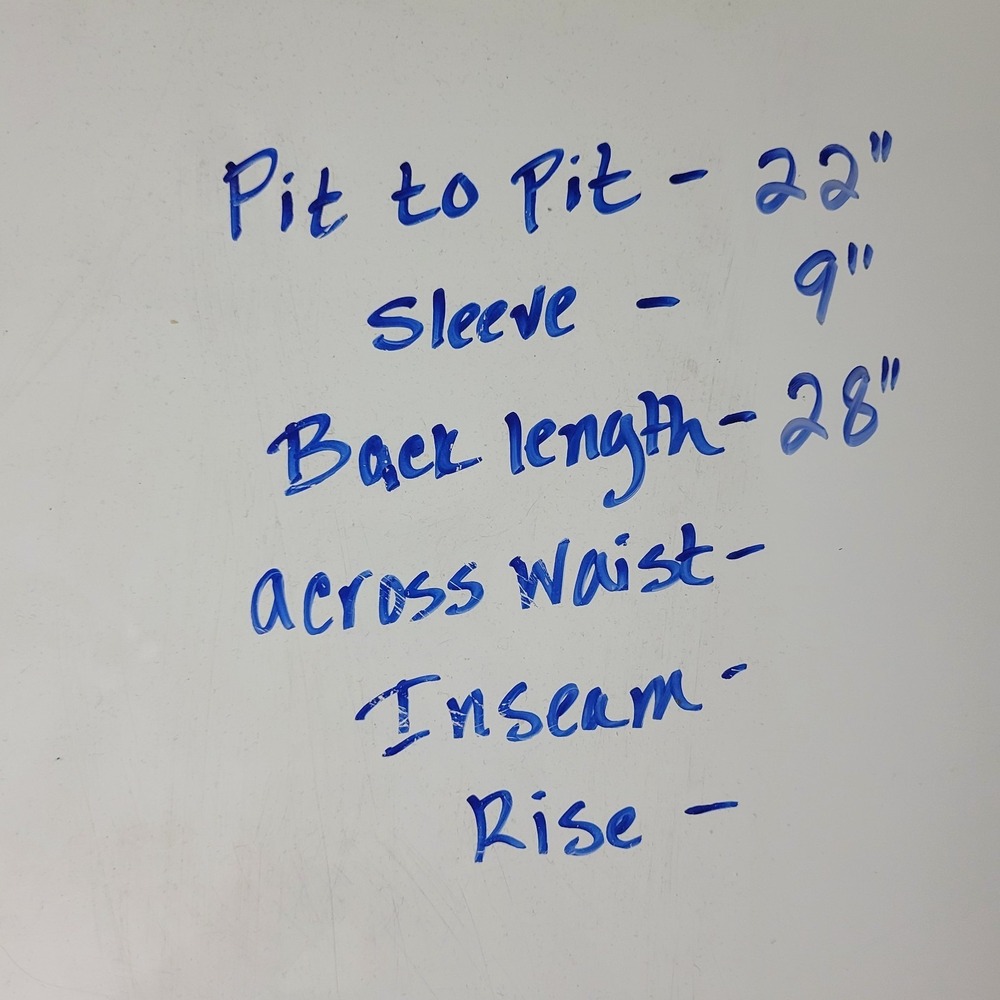 Pit to Pit - 22"
Sleeve - 9"
Back length - 28"
across waist -
Inseam -
Rise -